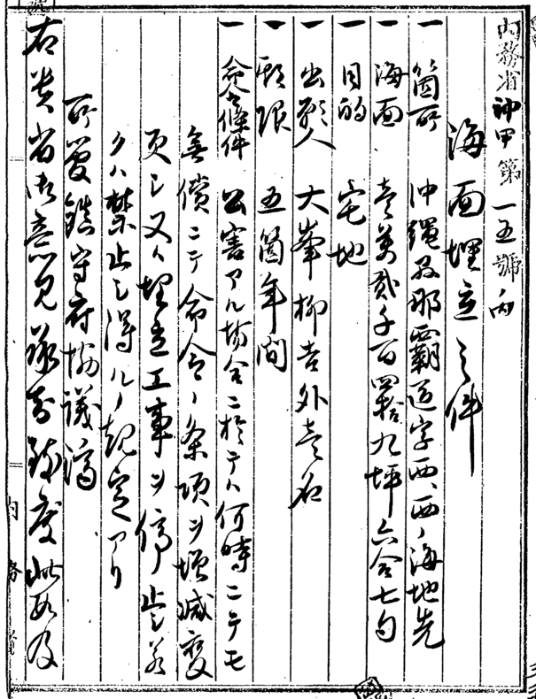 内務省神甲第一五號ノ内
海面埋立之件
一 箇所 沖縄縣那覇区字西、西ノ海地先
海面 壹萬貳千百四拾九坪六合七勺
一 目的 宅地
一 出願人 大峯柳吉外壹名
一 期限 五箇年間
一 命令條件 公害アル場合ニ於テハ何時ニテモ
無償ニテ命令ノ条項ヲ増減変
更シ又ハ埋立工事ヲ停止若
クハ禁止シ得ルノ規定アリ
所管鎮守府協議済
右貴省御意見承知致度此段及
内務省